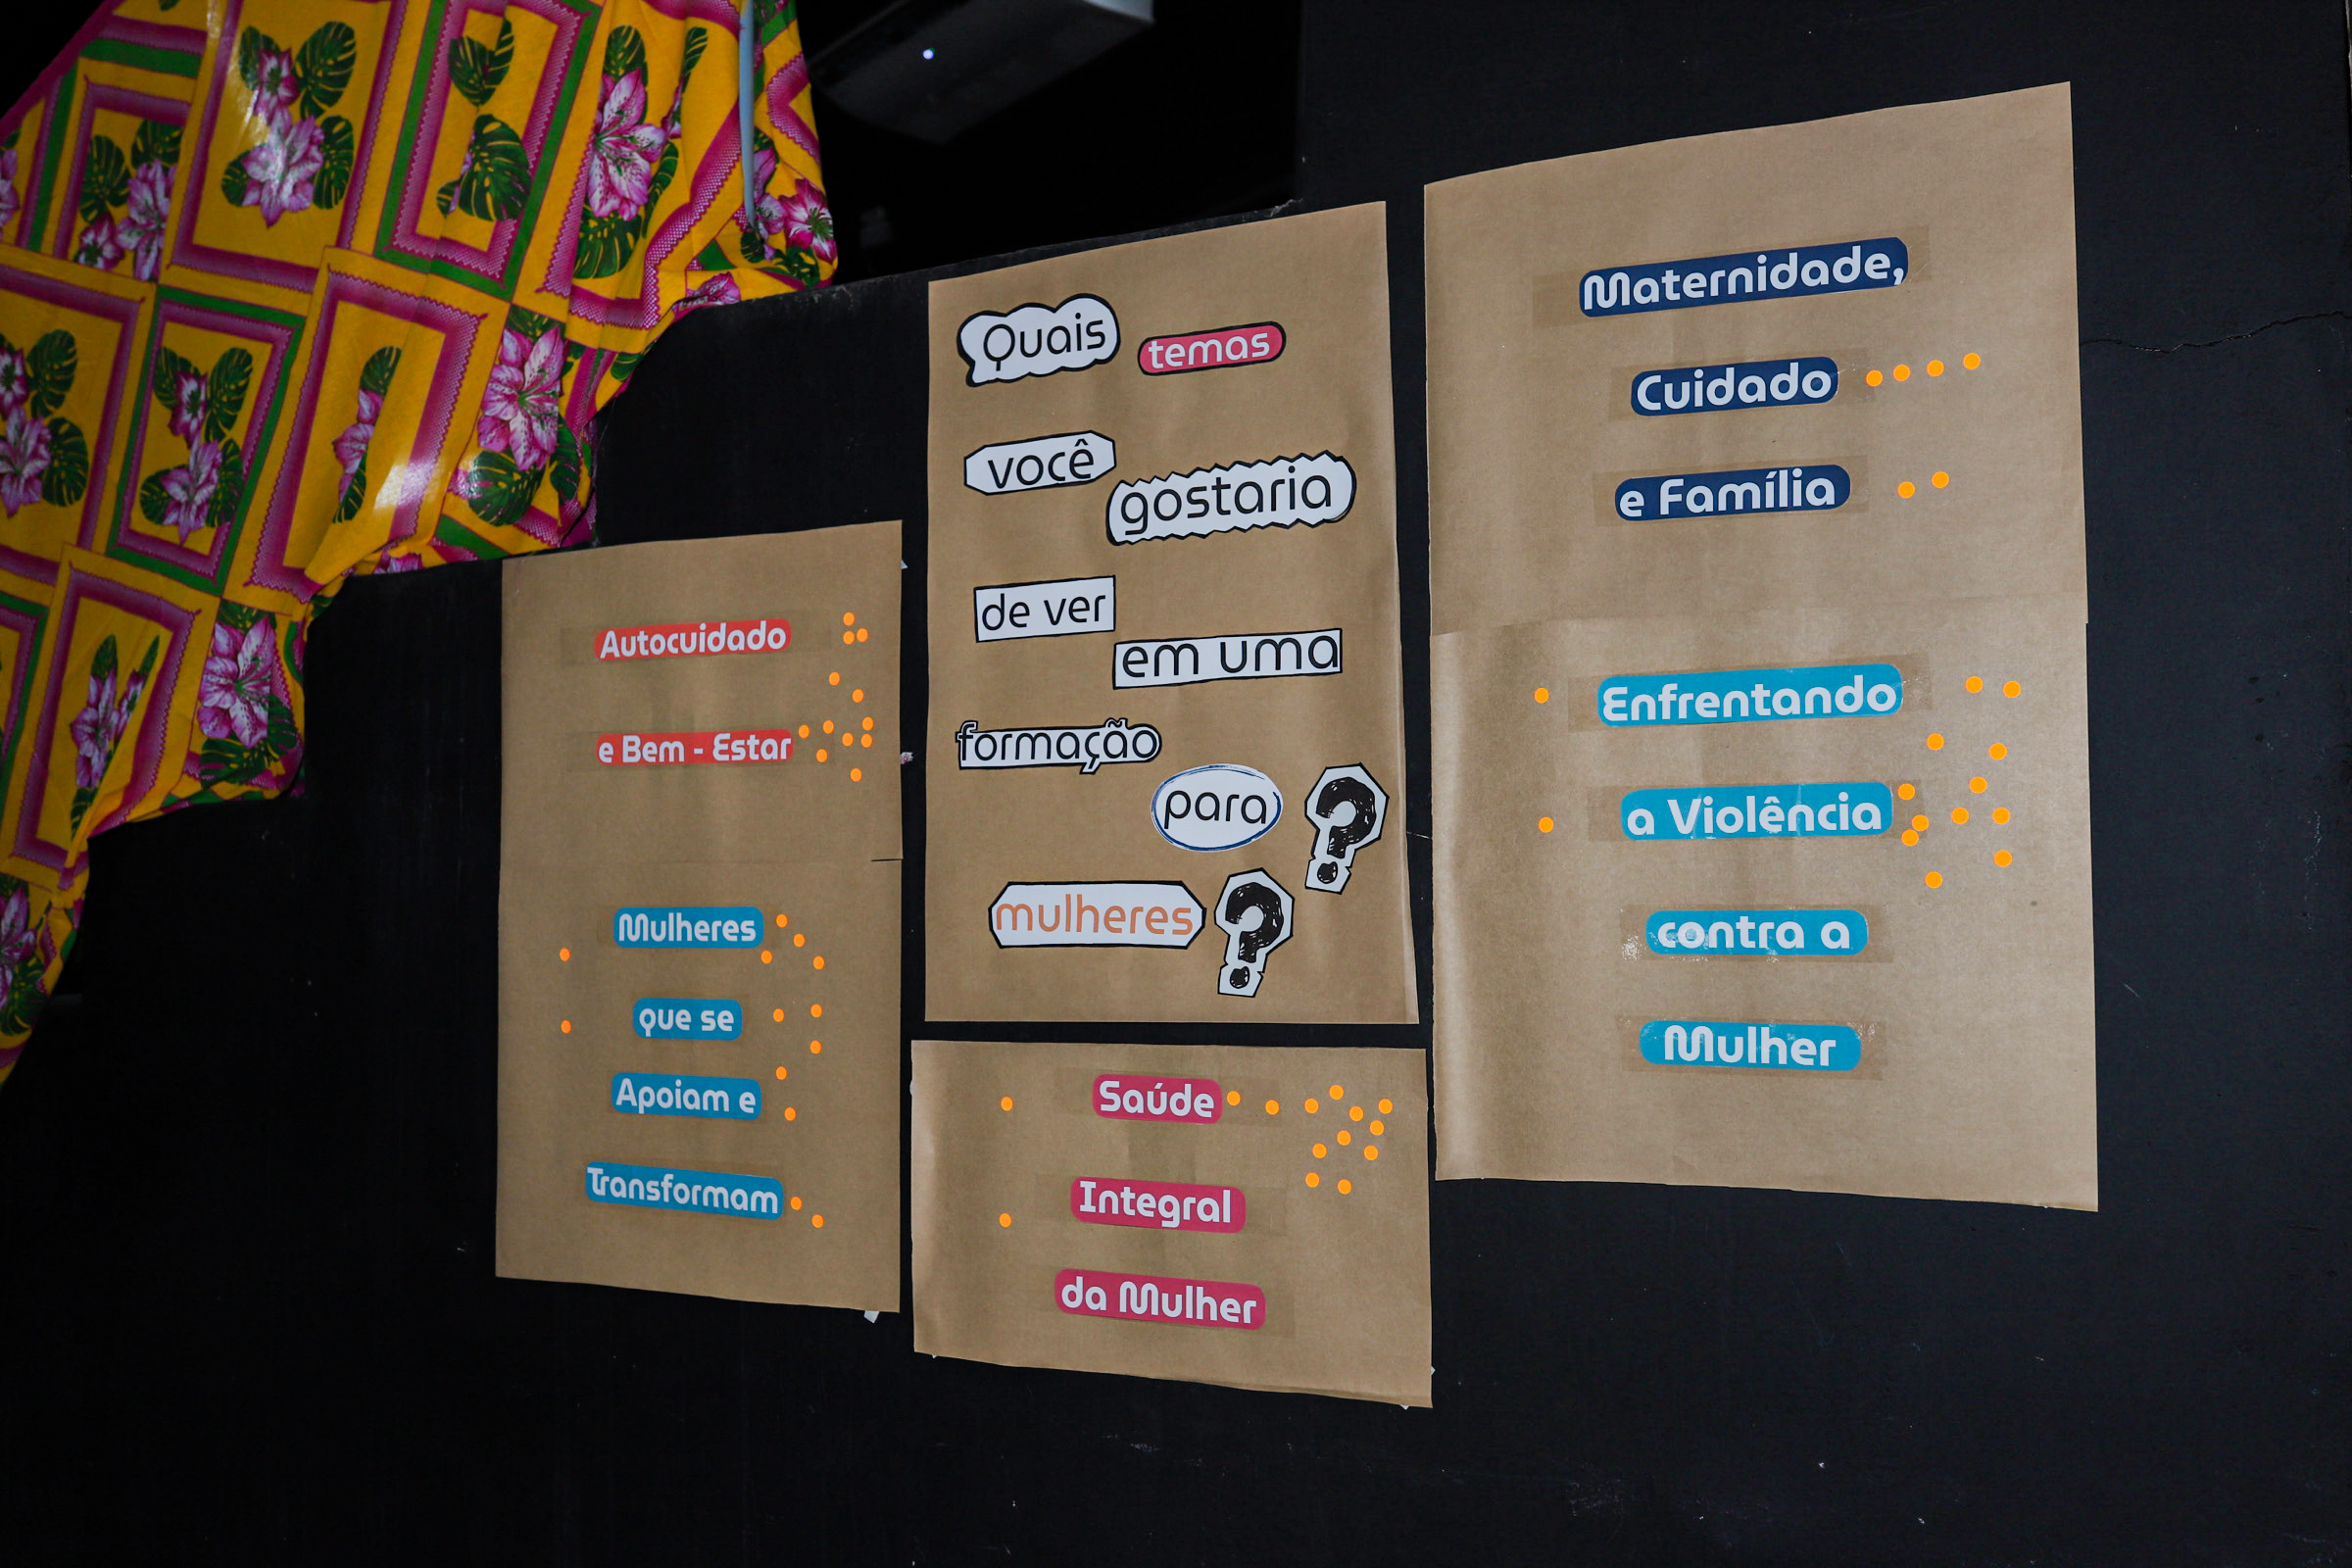 Quais temas
você gostaria
de ver
em uma
formação
para ?
mulheres ?
Autocuidado
e Bem - Estar
Mulheres
que se
Apoiam e
Transformam
Saúde
Integral
da Mulher
Maternidade,
Cuidado
e Família
Enfrentando
a Violência
contra a
Mulher